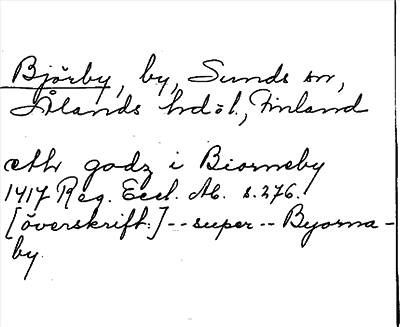 Björby, by, Sunds sn,
Ålands hd ö l., Finland
eth godz i Biorneby
1417 Reg. Eccl. Ab. s. 276.
[överskrift:] -- super -- Byorna-
by.